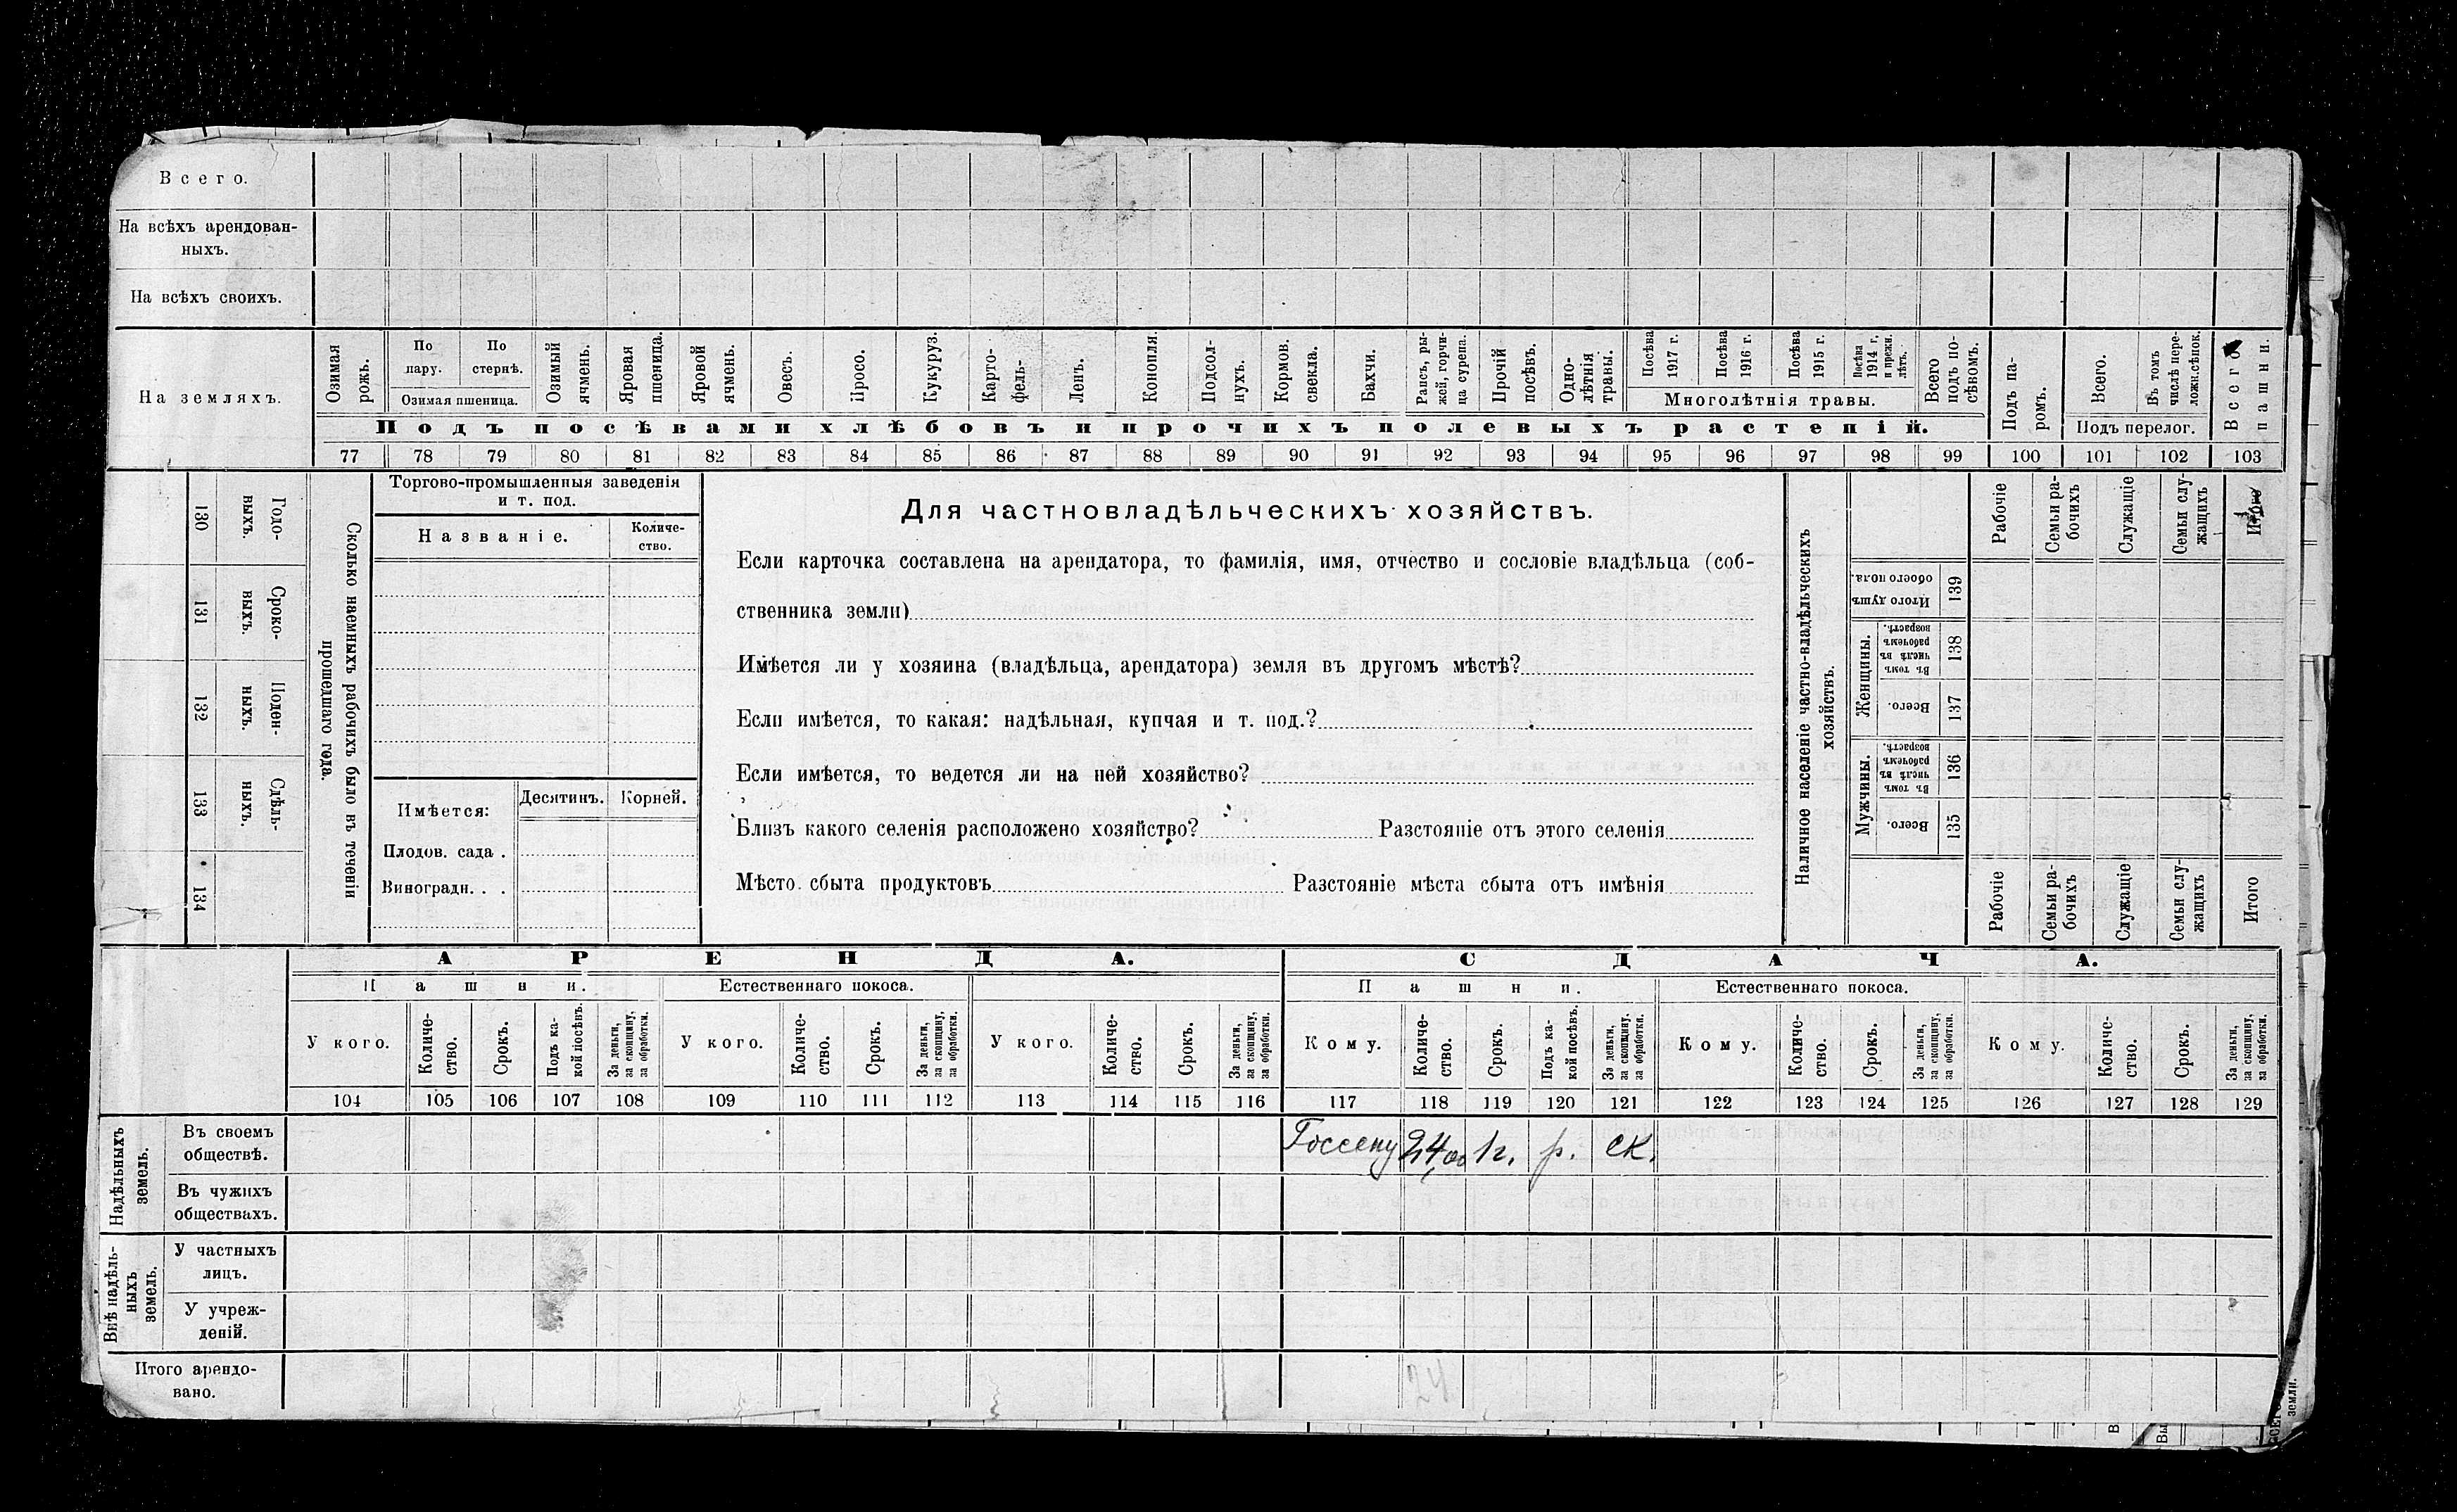 Всего.
На всѣхъ арендован-
ныхъ.
На всѣхъ своихъ.
На земляхъ.
Озимая рожь.
По пару.
По стернѣ.
Озимая пшеница.
Озимый ячмень.
Яровая пшеница.
Яровой ячмень.
Овесъ.
Просо.
Кукуруз.
Карто-
фель-
Ленъ.
Конопля.
Подсол-
нухъ.
Кормов. свекла.
Бахчи.
Рапсъ, ры-
жой, горчи-
ца сурепа.
Прочій посѣвъ.
Одно-
лѣтнія травы.
Посѣва 1917 г.
Посѣва 1916 г.
Посѣва 1915 г.
Посѣва 1914 г. и прежн. лѣтъ.
Многолѣтнія травы.
Всего подъ по-
сѣвомъ.
Подъ па-
ромъ.
Всего.
Въ томъ числѣ пере-
ложн. сѣнок.
Подъ перелог.
Всего пашни.
Подъ посѣвами хлѣбовъ и прочихъ полевыхъ растеній.
77 78 79 80 81 82 83 84 85 86 87 88 89 90 91 92 93 94 95 96 97 98 99 100 101 102 103
130 Годо-
выхъ.
131 Сроко-
выхъ.
132 Поден-
ныхъ.
133 Сдѣль-
ныхъ.
134
Сколько наемныхъ рабочихъ было въ теченіи
прошедшаго года.
Торгово-промышленныя заведенія
и т. под.
Названіе.
Количе-
ство.
Имѣется:
Десятинъ. Корней.
Плодов. сада .
Виноградн. . .
Для частновладѣльческихъ хозяйствъ.
Если карточка составлена на арендатора, то фамилія, имя, отчество и сословіе владѣльца (соб-
ственника земли)
Имѣется ли у хозяина (владѣльца, арендатора) земля въ другомъ мѣстѣ?
Если имѣется, то какая: надѣльная, купчая и т. под.?
Если имѣется, то ведется ли на ней хозяйство?
Близъ какого селенія расположено хозяйство? Разстояніе отъ этого селенія
Мѣсто сбыта продуктовъ Разстояніе мѣста сбыта отъ имѣнія
Наличное населеніе частно-владѣльческихъ
хозяйствъ.
Рабочіе
Семьи ра-
бочихъ
Служащіе
Семьи слу-
жащихъ
Итого
Итого душъ обоего пола. 139
Женщины.
Въ томъ числѣ въ рабочемъ возрастѣ. 138
Всего. 137
Мужчины.
Въ томъ числѣ въ рабочемъ возрастѣ. 136
Всего. 135
Рабочіе
Семьи ра-
бочихъ
Служащіе
Семьи слу-
жащихъ
Итого
АРЕНДА. СДАЧА.
Пашни. Естественнаго покоса. Пашни. Естественнаго покоса.
У кого.
Количе-
ство.
Срокъ.
Подъ ка-
кой посѣвъ.
За деньги,
за скопщину,
за обработки.
У кого.
Количе-
ство.
Срокъ.
За деньги,
за скопщину,
за обработки.
У кого.
Количе-
ство.
Срокъ.
За деньги,
за скопщину,
за обработки.
Кому.
Количе-
ство.
Срокъ.
Подъ ка-
кой посѣвъ.
За деньги,
за скопщину,
за обработки.
Кому.
Количе-
ство.
Срокъ.
За деньги,
за скопщину,
за обработки.
Кому.
Количе-
ство.
Срокъ.
За деньги,
за скопщину,
за обработки.
104 105 106 107 108 109 110 111 112 113 114 115 116 117 118 119 120 121 122 123 124 125 126 127 128 129
Надѣльныхъ
земель.
Въ своемъ
обществѣ.
Госсену 24,00 1г. р. ск.
Въ чужихъ
обществахъ.
Внѣ надѣль-
ныхъ
земель.
У частныхъ
лицъ.
У учреж-
деній.
Итого арендо-
вано.
24
земли.